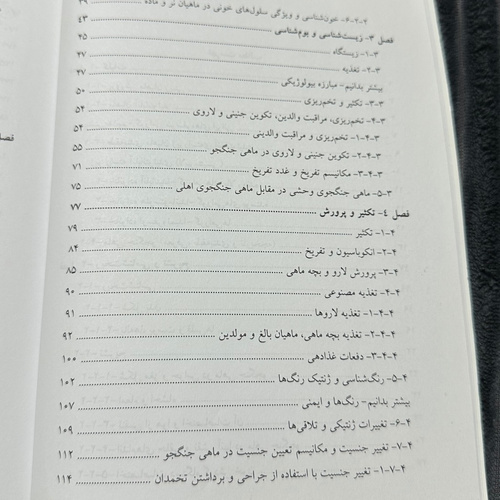 ۲-۴-۶- خون‌شناسی و ویژگی سلول‌های خونی در ماهیان نر و ماده ۳۹
فصل ۳- زیست‌شناسی و بوم‌شناسی ۴۳
۳-۱- زیستگاه ۴۵
۳-۲- تغذیه ۴۷
بیشتر بدانیم- مبارزه بیولوژیکی ۴۷
۳-۳- تکثیر و تخم‌ریزی ۵۰
۳-۴- تخم‌ریزی، مراقبت والدین، تکوین جنینی و لاروی ۵۴
۳-۴-۱- تخم‌ریزی و مراقبت والدینی ۵۴
۳-۴-۲- تکوین جنینی و لاروی در ماهی جنگجو ۵۵
۳-۴-۳- مکانیسم تفریخ و غدد تفریخ ۷۱
۳-۵- ماهی جنگجوی وحشی در مقابل ماهی جنگجوی اهلی ۷۵
فصل ٤- تکثیر و پرورش ۷۷
۴-۱- تکثیر ۷۹
۴-۲- انکوباسیون و تفریخ ۸۴
۴-۳- پرورش لارو و بچه ماهی ۸۵
۴-۴- تغذیه مصنوعی ۹۰
۴-۴-۱- تغذیه لاروها ۹۱
۴-۴-۲- تغذیه بچه ماهی، ماهیان بالغ و مولدین ۹۲
۴-۴-۳- دفعات غذادهی ۱۰۰
۴-۵- رنگ‌شناسی و ژنتیک رنگ‌ها ۱۰۲
بیشتر بدانیم- رنگ‌ها و ایمنی ۱۰۷
۴-۶- تغییرات ژنتیکی و تلاقی‌ها ۱۰۹
۴-۷- تغییر جنسیت و مکانیسم تعیین جنسیت در ماهی جنگجو ۱۱۲
۴-۷-۱- تغییر جنسیت با استفاده از جراحی و برداشتن تخمدان ۱۱۴
فصل